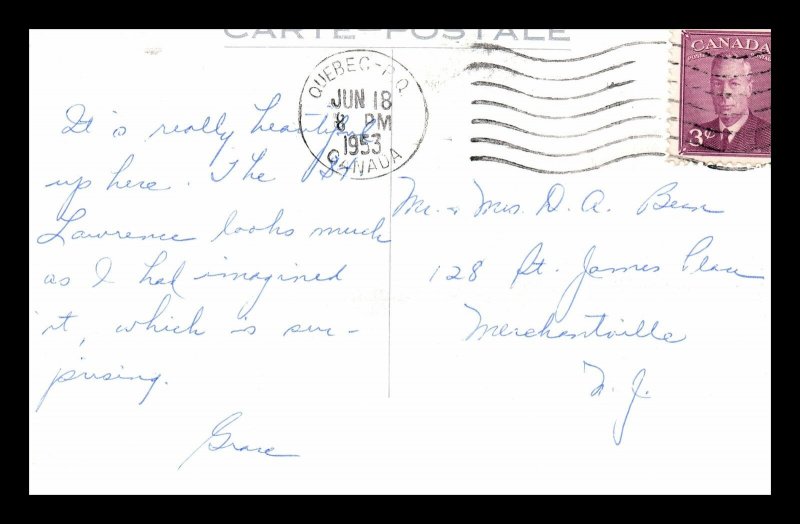 CARTE-POSTALE
QUEBEC-P.Q.
JUN 18
8 PM
1953
CANADA
CANADA
3¢
It is really beautiful
up here. The St
Lawrence looks much
as I had imagined
it, which is sur-
prising.
Grace
Mr. + Mrs. D. A. Bean
128 St. James Place
Merchantville
N. J.